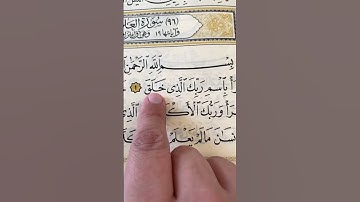 (٩٦) سُورَةُ الْعَلَ
وَآيَاتُهَا ١٩
بِسْمِ اللَّهِ الرَّحْمَٰنِ
رَأْ بِاسْمِ رَبِّكَ الَّذِي خَلَقَ ١
رَأْ وَرَبُّكَ الْأَكْ الَّذِي
نسَٰنَ مَا لَمْ يَعْلَمْ كَلَّا